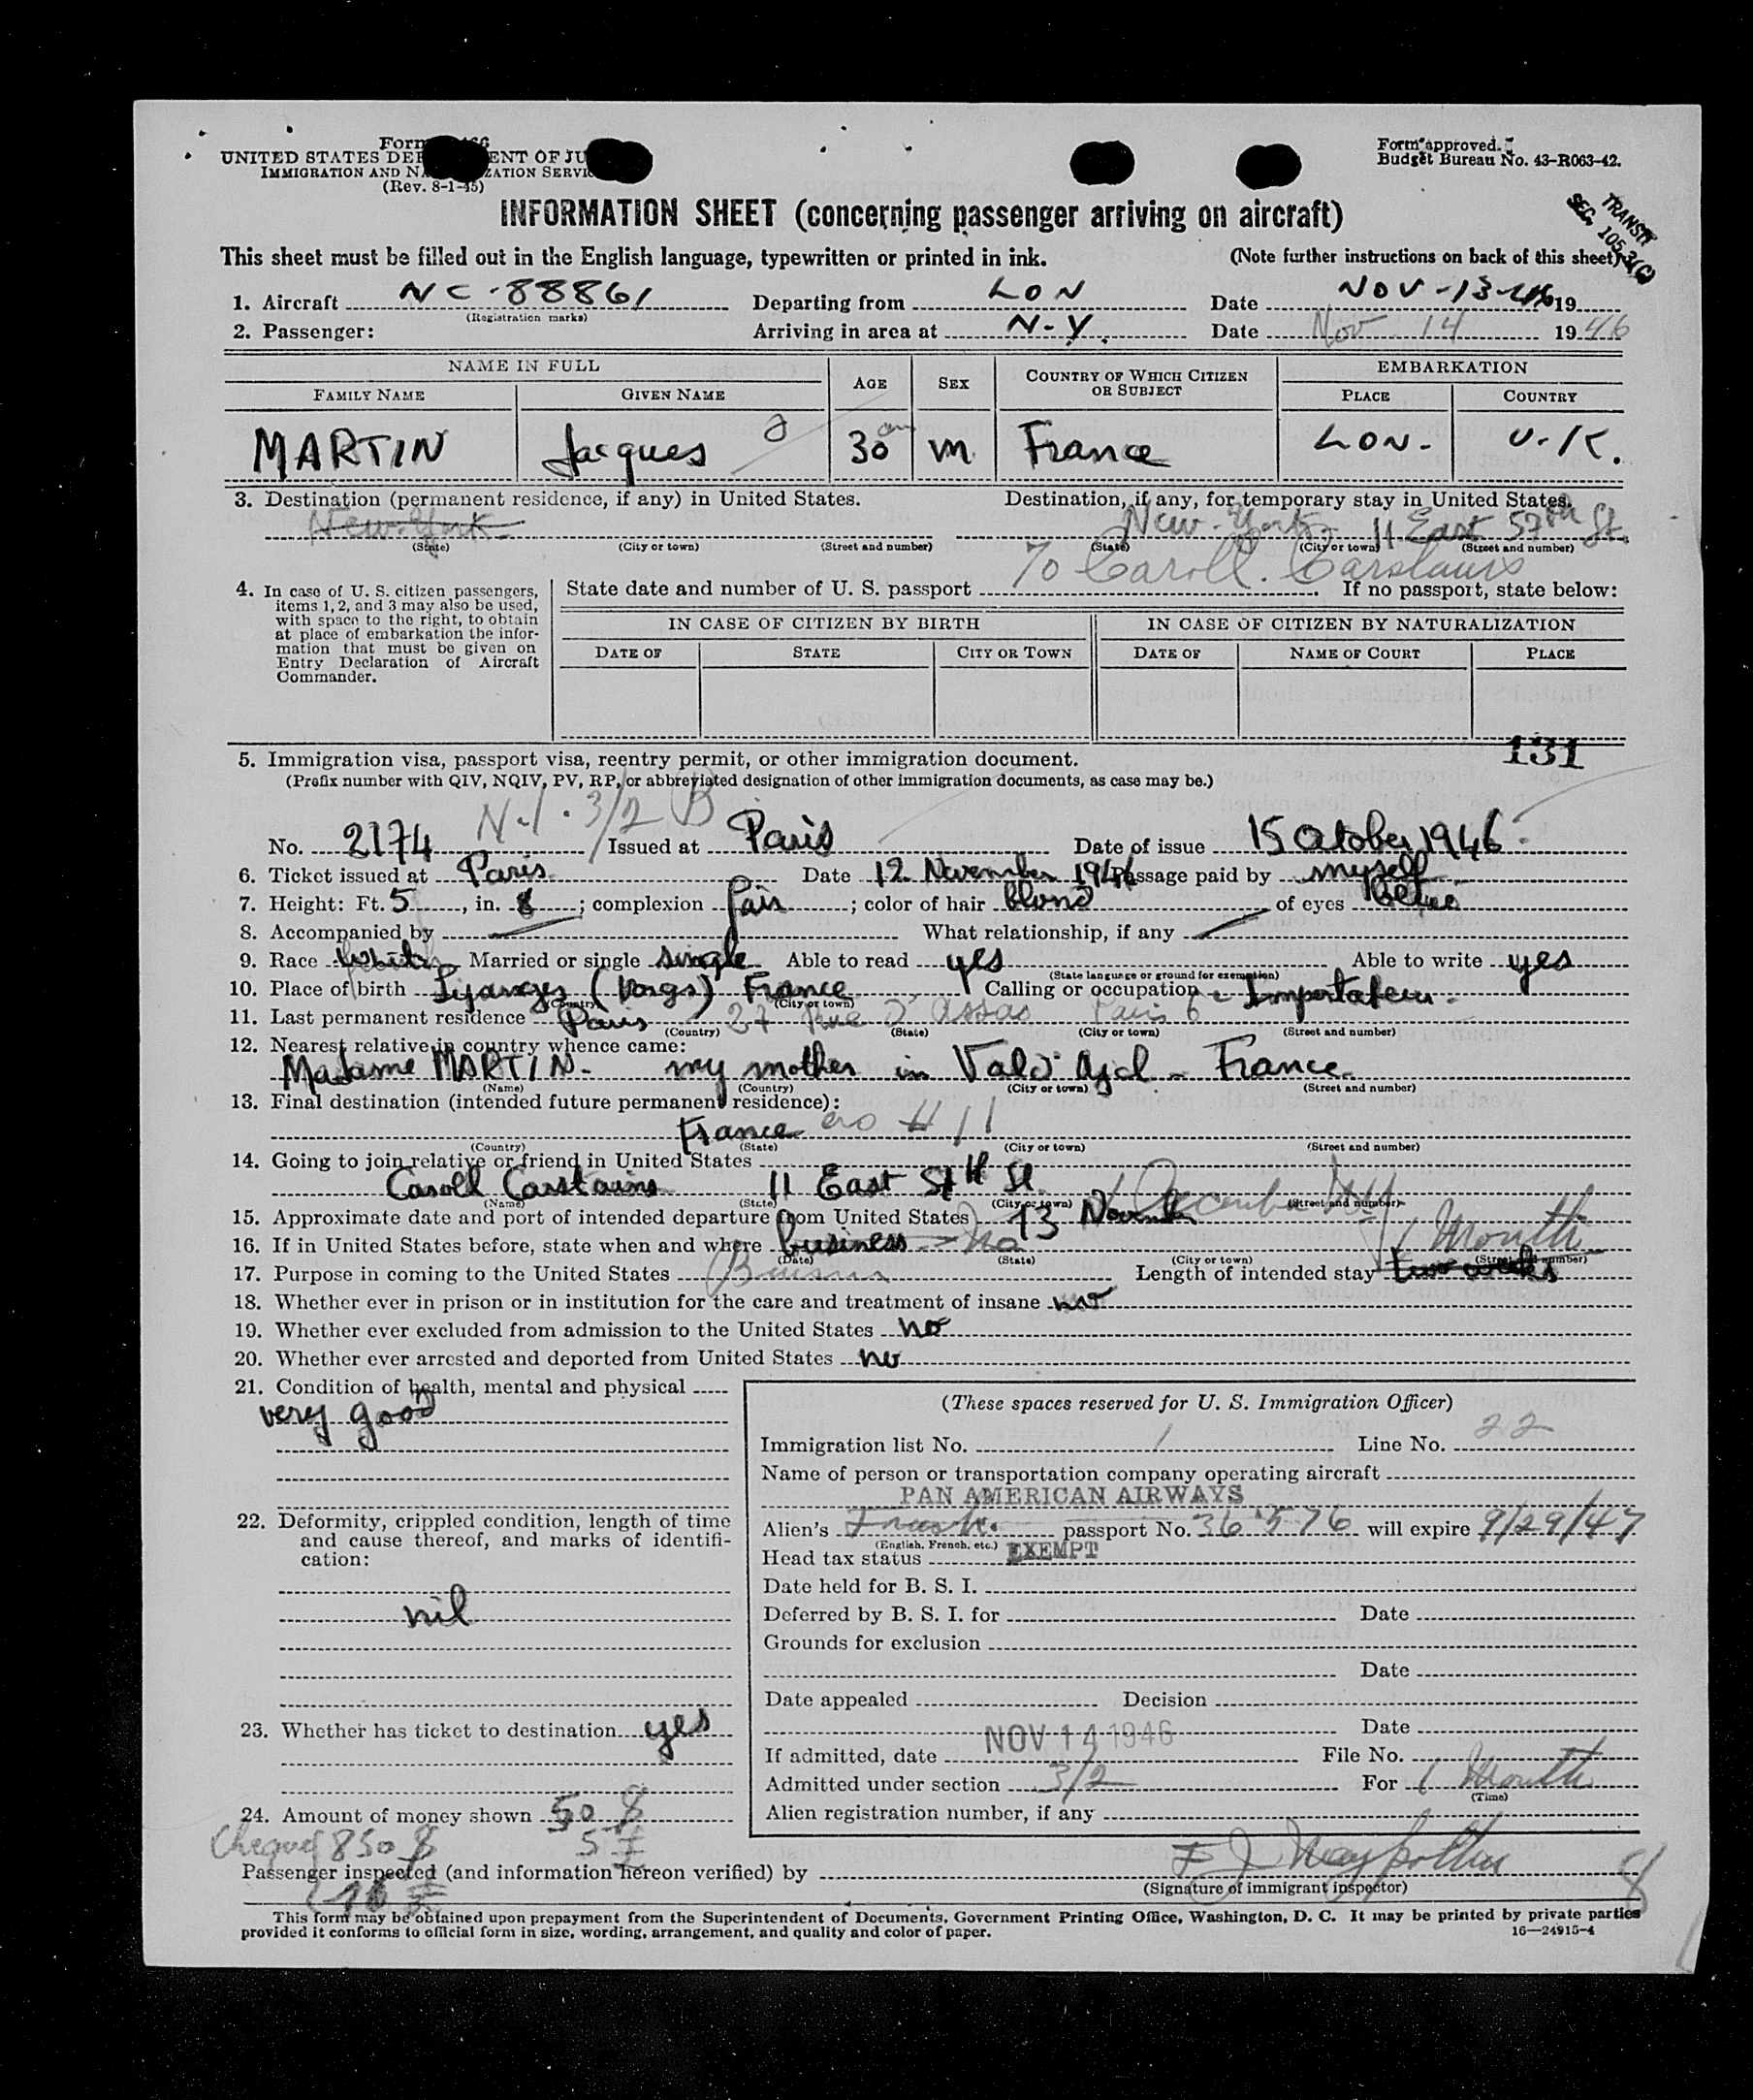 Form
UNITED STATES DEP ENT OF JU
IMMIGRATION AND NA ZATION SERVIC
(Rev. 8-1-45)
Form approved.
Budget Bureau No. 43-R063-42.
TRANSIT
SEC. 105.3(C)
INFORMATION SHEET (concerning passenger arriving on aircraft)
This sheet must be filled out in the English language, typewritten or printed in ink. (Note further instructions on back of this sheet)
1. Aircraft NC-88861 Departing from LON Date NOV-13-46 19
(Registration marks)
2. Passenger: Arriving in area at N-Y. Date Nov 14 1946
NAME IN FULL AGE SEX COUNTRY OF WHICH CITIZEN OR SUBJECT EMBARKATION
FAMILY NAME GIVEN NAME PLACE COUNTRY
MARTIN Jacques 30 M France LON- U.K.
3. Destination (permanent residence, if any) in United States. Destination, if any, for temporary stay in United States.
New-York New-York 11 East 57th St.
(State) (City or town) (Street and number) (State) (City or town) (Street and number)
To Caroll. Carstairs
4. In case of U. S. citizen passengers, items 1, 2, and 3 may also be used, with space to the right, to obtain at place of embarkation the information that must be given on Entry Declaration of Aircraft Commander.
State date and number of U. S. passport If no passport, state below:
IN CASE OF CITIZEN BY BIRTH IN CASE OF CITIZEN BY NATURALIZATION
DATE OF STATE CITY OR TOWN DATE OF NAME OF COURT PLACE
131
5. Immigration visa, passport visa, reentry permit, or other immigration document.
(Prefix number with QIV, NQIV, PV, RP, or abbreviated designation of other immigration documents, as case may be.)
N.I. 3/2 B
No. 2174 Issued at Paris Date of issue 15 October 1946
6. Ticket issued at Paris Date 12 November 1946 Passage paid by myself
7. Height: Ft. 5, in. 8; complexion fair; color of hair blond of eyes
8. Accompanied by What relationship, if any
9. Race White Married or single single Able to read yes Able to write yes
(State language or ground for exemption)
10. Place of birth (Vosges) France Calling or occupation Importateur
(Country) (City or town)
11. Last permanent residence Paris 27 Rue D'Assas Paris 6
(Country) (State) (City or town) (Street and number)
12. Nearest relative in country whence came:
Madame MARTIN- my mother in Val d'Ajol - France
(Name) (Country) (City or town) (Street and number)
13. Final destination (intended future permanent residence):
France
(Country) (State) (City or town) (Street and number)
14. Going to join relative or friend in United States
Caroll Carstairs 11 East 57th St
(Name) (State) (City or town) (Street and number)
15. Approximate date and port of intended departure from United States 13 November December NY
16. If in United States before, state when and where business No
(Date) (State) (City or town) (Street and number)
17. Purpose in coming to the United States Business Length of intended stay two weeks 1 Month
18. Whether ever in prison or in institution for the care and treatment of insane no
19. Whether ever excluded from admission to the United States no
20. Whether ever arrested and deported from United States no
21. Condition of health, mental and physical
very good
22. Deformity, crippled condition, length of time and cause thereof, and marks of identification:
nil
23. Whether has ticket to destination yes
24. Amount of money shown 50 $
5 £
Cheques 850 $
(These spaces reserved for U. S. Immigration Officer)
Immigration list No. 1 Line No. 22
Name of person or transportation company operating aircraft
PAN AMERICAN AIRWAYS
Alien's French passport No. 36576 will expire 9/29/47
(English, French, etc.)
Head tax status EXEMPT
Date held for B. S. I.
Deferred by B. S. I. for Date
Grounds for exclusion
Date
Date appealed Decision
Date
If admitted, date NOV 14 1946 File No.
Admitted under section 3/2 For 1 Month
(Time)
Alien registration number, if any
Passenger inspected (and information hereon verified) by
(Signature of immigrant inspector)
This form may be obtained upon prepayment from the Superintendent of Documents, Government Printing Office, Washington, D. C. It may be printed by private parties
provided it conforms to official form in size, wording, arrangement, and quality and color of paper. 16—24915-4